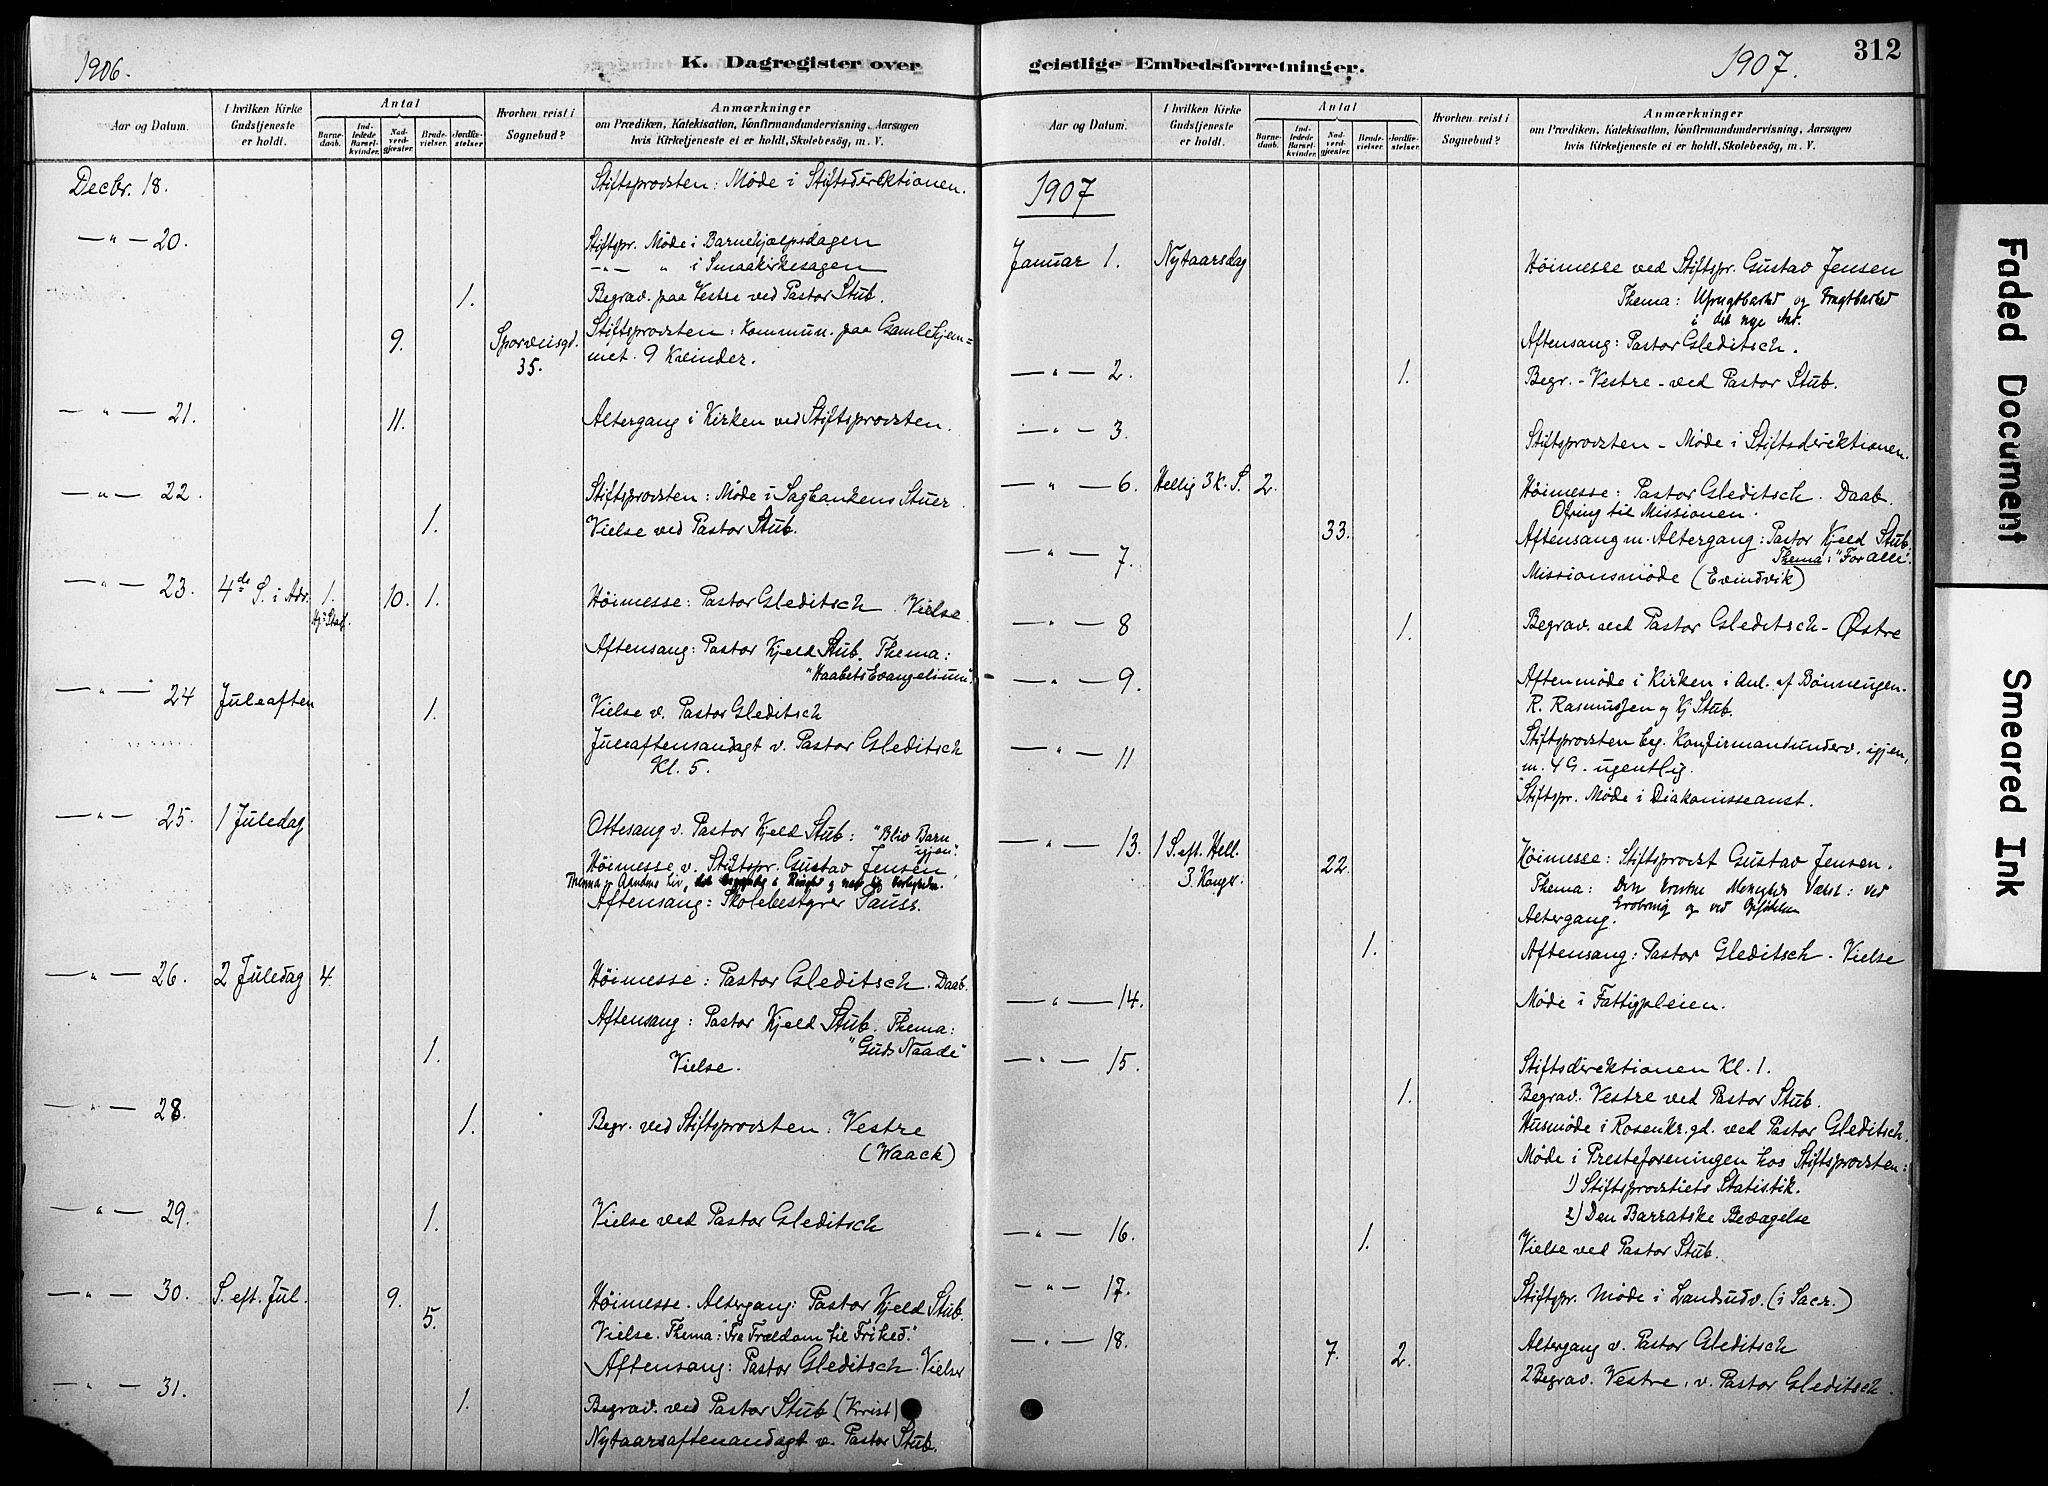 1906.
K. Dagregister over
Aar og Datum.
I hvilken Kirke Gudstjeneste er holdt.
Antal
Barnedaab.
Indledede Barselkvinder.
Nadverdgjæster.
Brudevielser.
Jordfæstelser
Hvorhen reist i Sognebud?
Anmærkninger
om Prædiken, Katekisation, Konfirmandundervisning, Aarsagen
hvis Kirketjeneste ei er holdt, Skolebesøg, m. V.
Decbr. 18. Stiftsprovsten: Møde i Stiftsdirektionen.
—"— 20. Stiftspr. Møde i Barnehjælpsdagen
—"— " i Smaakirkesagen
1. Begrav. paa Vestre ved Pastor Stub.
9. Sporveisgd. 35. Stiftsprovsten: Kommun. paa Gamlehjem=
met. 9 Kvinder.
—"— 21. 11. Altergang i Kirken ved Stiftsprovsten.
—"— 22. Stiftsprovsten: Møde i Sagbankens Stuer.
1. Vielse ved Pastor Stub.
—"— 23. 4de S. i Adv. 1. 10. 1. Høimesse: Pastor Gleditsch. Vielse.
Aftensang: Pastor Kjeld Stub. Thema:
"Haabets Evangelium".
—"— 24 Juleaften 1. Vielse v. Pastor Gleditsch
Juleaftensandagt v. Pastor Gleditsch
Kl. 5.
—"— 25. 1 Juledag Ottesang v. Pastor Kjeld Stub: "Bliv Barn
igjen".
Høimesse v. Stiftspr. Gustav Jensen,
Thema: Aandens Liv,
Aftensang: Skolebestyrer Tauss.
—"— 26. 2 Juledag 4. Høimesse: Pastor Gleditsch. Daab.
Aftensang: Pastor Kjeld Stub. Thema:
"Guds Naade"
1. Vielse.
—"— 28. 1. Begr. ved Stiftsprovsten: Vestre
(Waack)
—"— 29. 1. Vielse ved Pastor Gleditsch
—"— 30. S. eft. Jul. 9. Høimesse. Altergang: Pastor Kjeld Stub.
5. Vielse. Thema: "Fra Trældom til Frihed."
Aftensang: Pastor Gleditsch. Vielser
—"— 31. 1. Begrav. ved Pastor Stub (Krist)
Nytaarsaftenandagt v. Pastor Stub.
geistlige Embedsforretninger.
1907.
312
Aar og Datum.
I hvilken Kirke Gudstjeneste er holdt.
Antal
Barnedaab.
Indledede Barselkvinder.
Nadverdgjæster.
Brudevielser.
Jordfæstelser.
Hvorhen reist i Sognebud?
Anmærkninger
om Prædiken, Katekisation, Konfirmandundervisning, Aarsagen
hvis Kirketjeneste ei er holdt, Skolebesøg, m. V.
1907
Januar 1. Nytaarsdag Høimesse ved Stiftspr. Gustav Jensen
Thema: Ufrugtbarhed og Frugtbarhed
i det nye Aar.
Aftensang: Pastor Gleditsch.
—"— 2. 1. Begr. - Vestre - ved Pastor Stub.
—"— 3. Stiftsprovsten - Møde i Stiftsdirektionen.
—"— 6. Hellig 3 K. S. 2. Høimesse: Pastor Gleditsch. Daab.
Ofring til Missionen.
33. Aftensang m. Altergang: Pastor Kjeld Stub.
Thema: "For alle".
—"— 7. Missionsmøde (Evindvik)
—"— 8 1. Begrav. ved Pastor Gleditsch - Østre
—"— 9. Aftenmøde i Kirken i Anl. af Bønneugen.
R. Rasmussen og Kj Stub.
—"— 11 Stiftsprovsten beg. Konfirmandunderv. igjen,
m. 4 G. ugentlig.
Stiftspr. Møde i Diakonisseanst.
—"— 13. 1 S. eft. Hell. 3. Konger. 22. Høimesse: Stiftsprovst Gustav Jensen.
Thema: Den kristne Menigheds Vækst: ved
Erobring og ved
Altergang.
1. Aftensang: Pastor Gleditsch - Vielse
—"— 14. Møde i Fattigpleien.
—"— 15. Stiftsdirektionen Kl. 1.
1. Begrav. Vestre ved Pastor Stub.
Husmøde i Rosenkr. gd. ved Pastor Gleditsch.
Møde i Presteforeningen hos Stiftsprovsten:
1) Stiftsprovstiets Statistik.
2) Den Barratske Bevægelse
—"— 16. 1. Vielse ved Pastor Stub.
—"— 17. Stiftspr. Møde i Landsudv. (i Sacr.)
—"— 18. 7. 2. Altergang v. Pastor Gleditsch
2 Begrav. Vestre. v. Pastor Gleditsch.
Faded Document
Smeared Ink